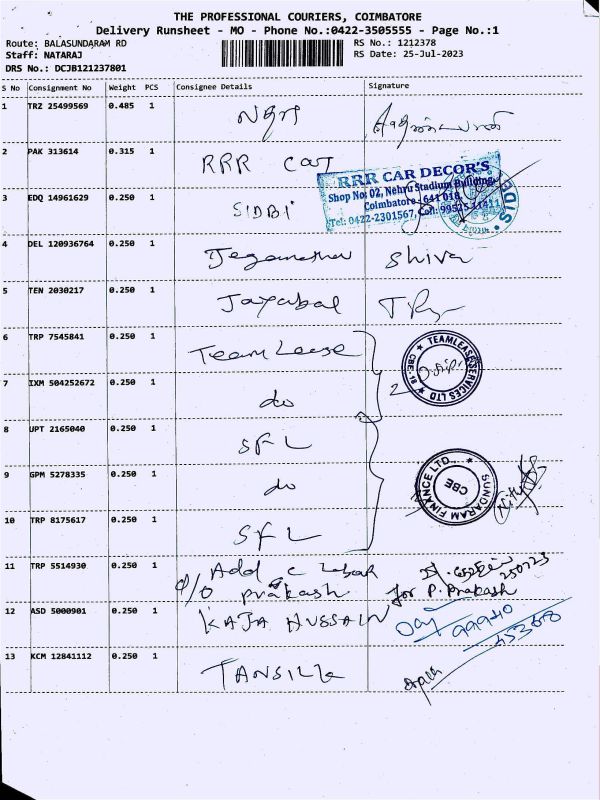 THE PROFESSIONAL COURIERS, COIMBATORE
Delivery Runsheet - MO - Phone No.:0422-3505555 - Page No.:1
Route: BALASUNDARAM RD
RS No.: 1212378
Staff: NATARAJ
RS Date: 25-Jul-2023
DRS No.: DCJB121237801
S No Consignment No Weight PCS Consignee Details Signature
1 TRZ 25499569 0.485 1
2 PAK 313614 0.315 1 RRR Car
RRR CAR DECOR'S
Shop No: 02, Nehru Stadium Building,
Coimbatore - 641 018.
Tel: 0422-2301567, Cell:
3 EDQ 14961629 0.250 1 SIDBI
SIDBI
4 DEL 120936764 0.250 1 Jeganathan Shiva
5 TEN 2030217 0.250 1 Jayabal
6 TRP 7545841 0.250 1 Team Lease
TEAMLEASE SERVICES LTD
CBE-18
7 IXM 504252672 0.250 1 do 2
8 UPT 2165040 0.250 1 SFL
9 GPM 5278335 0.250 1 do
SUNDARAM FINANCE LTD.,
CBE
10 TRP 8175617 0.250 1 SFL
11 TRP 5514930 0.250 1 Add C Labour
250723
O/O Prakash for P. Prakash
12 ASD 5000901 0.250 1 KAJA HUSSAIN
99940
45368
13 KCM 12841112 0.250 1